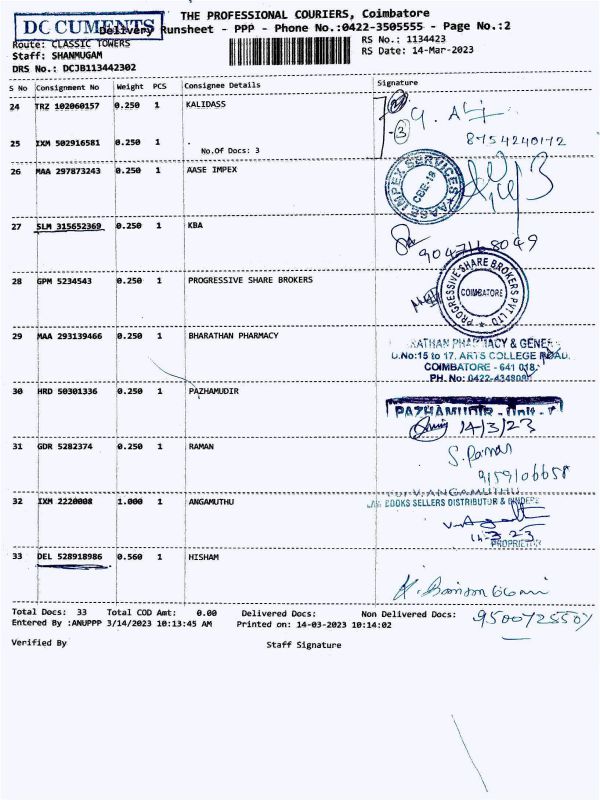 THE PROFESSIONAL COURIERS, Coimbatore
DOCUMENTS
Delivery Runsheet - PPP - Phone No.:0422-3505555 - Page No.:2
Route: CLASSIC TOWERS
RS No.: 1134423
Staff: SHANMUGAM
RS Date: 14-Mar-2023
DRS No.: DCJB113442302
S No Consignment No Weight PCS Consignee Details Signature
24 TRZ 102060157 0.250 1 KALIDASS
3
8754240172
25 IXM 502916581 0.250 1 .
No.Of Docs: 3
26 MAA 297873243 0.250 1 AASE IMPEX
AASE IMPEX SERVICES CBE-18
27 SLM 315652369 0.250 1 KBA
9047168049
28 GPM 5234543 0.250 1 PROGRESSIVE SHARE BROKERS
PROGRESSIVE SHARE BROKERS PVT LTD COIMBATORE
29 MAA 293139466 0.250 1 BHARATHAN PHARMACY
RATHAN PHARMACY & GENE
D.No:15 to 17, ARTS COLLEGE ROAD,
COIMBATORE - 641 018.
PH. No: 0422-
30 HRD 50301336 0.250 1 PAZHAMUDIR
PAZHAMUDIR - Unit -
14/3/23
31 GDR 5282374 0.250 1 RAMAN
S. Raman
9159106658
32 IXM 2220008 1.000 1 ANGAMUTHU
V. ANGAMUTHU
BOOKS SELLERS DISTRIBUTOR &
14-3-23
PROPRIETOR
33 DEL 528918986 0.560 1 HISHAM
Total Docs: 33 Total COD Amt: 0.00 Delivered Docs: Non Delivered Docs:
9500725507
Entered By :ANUPPP 3/14/2023 10:13:45 AM Printed on: 14-03-2023 10:14:02
Verified By Staff Signature